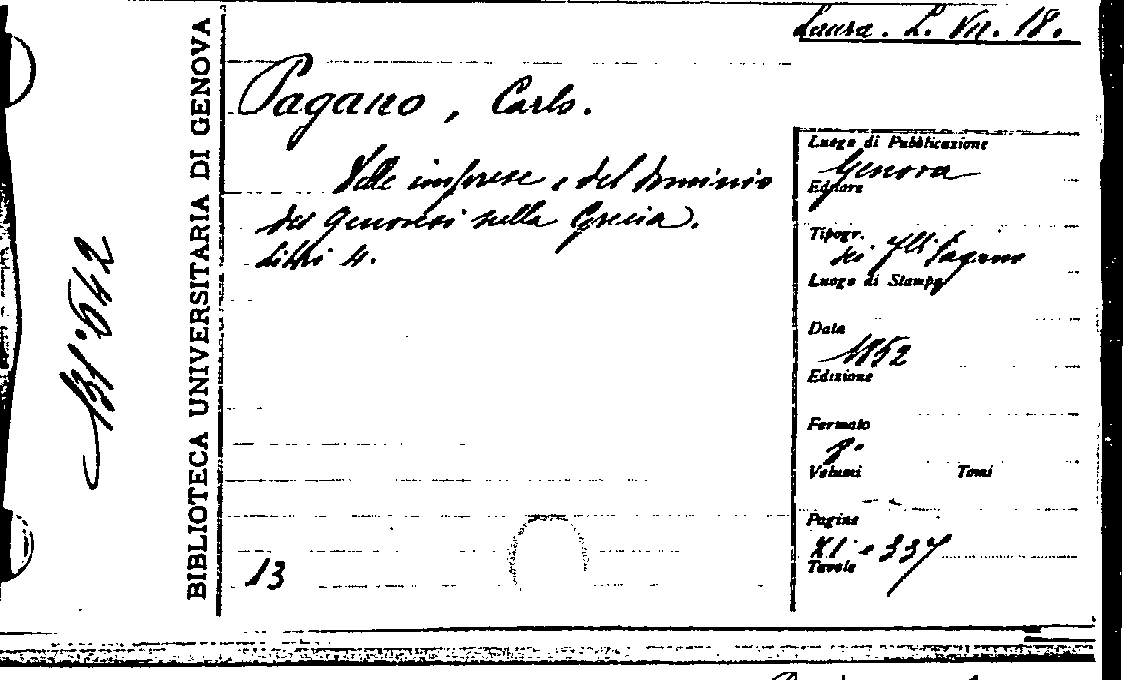 Laura. L. VII. 18.
BIBLIOTECA UNIVERSITARIA DI GENOVA
131°642
Pagano, Carlo.
Delle imprese e del dominio
dei Genovesi nella Grecia.
Libri 4.
13
Luogo di Pubblicazione
Genova
Editore
Tipogr.
dei flli Pagano
Luogo di Stampa
Data
1852
Edizione
Formato
8°
Volumi Tomi
Pagine
XI e 337
Tavole